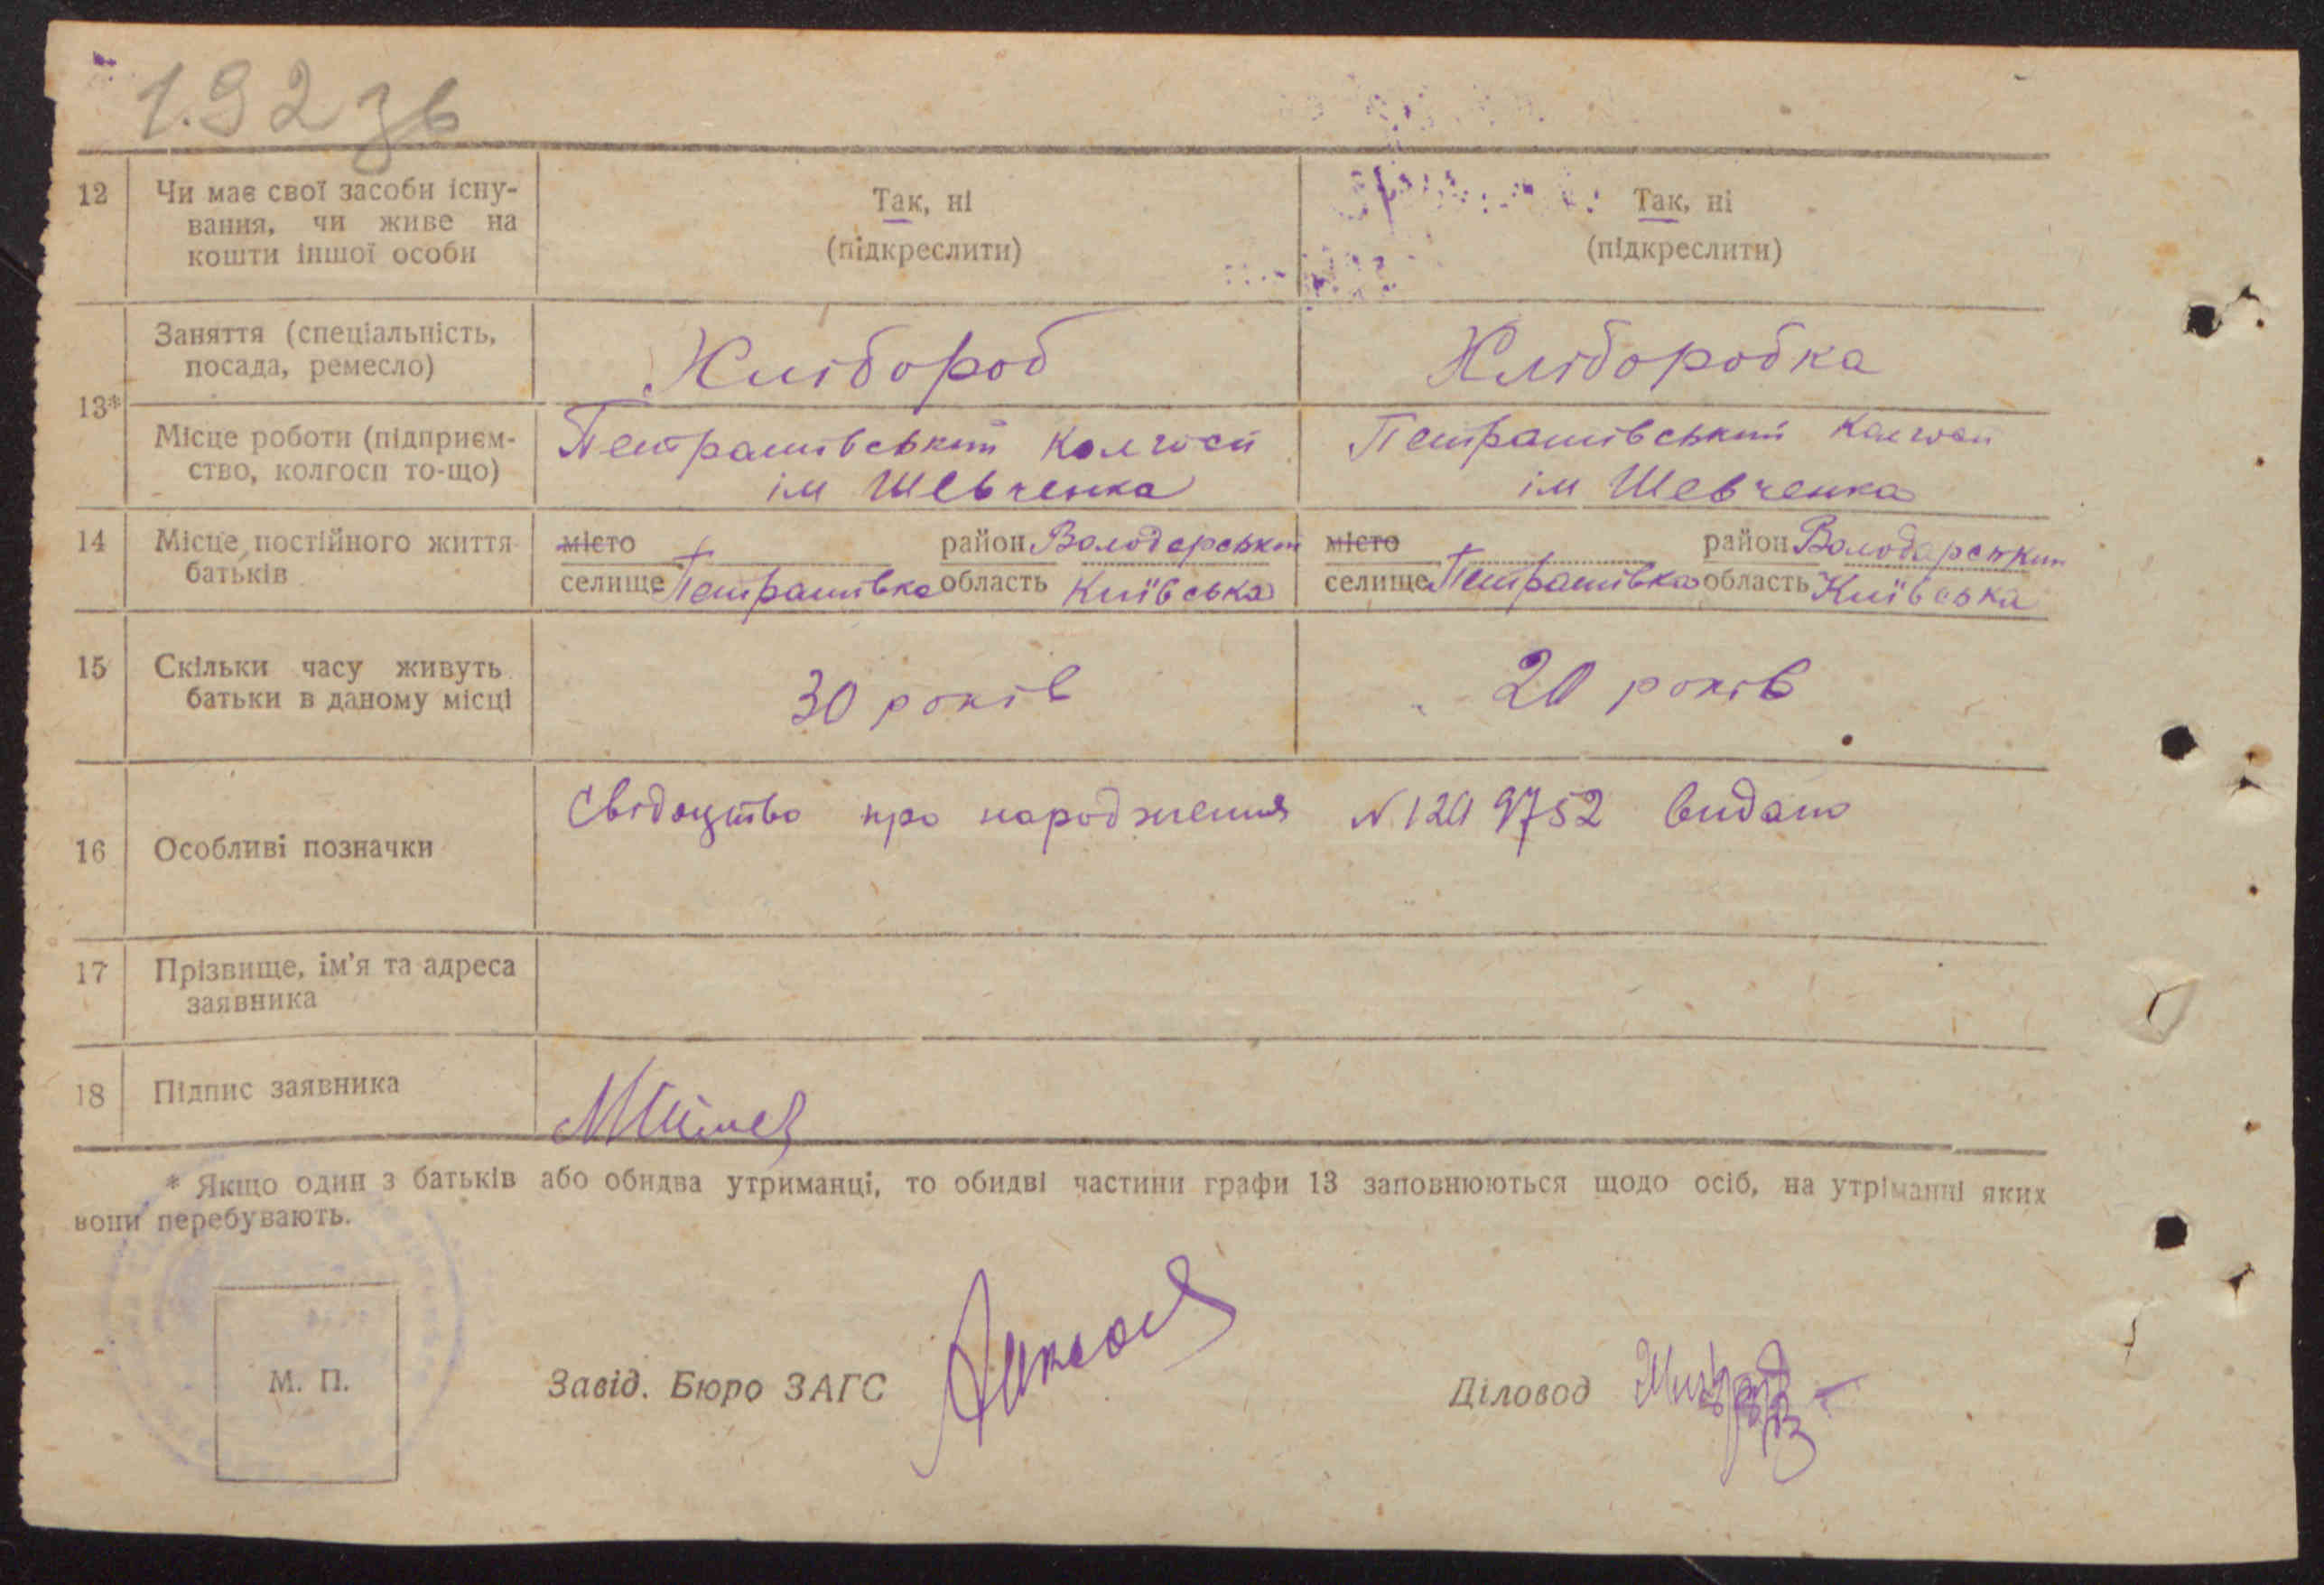 192 зв
12 Чи має свої засоби існу-
вання, чи живе на
кошти іншої особи
Так, ні
(підкреслити)
Так, ні
(підкреслити)
13*
Заняття (спеціальність,
посада, ремесло)
Хлібороб
Хліборобка
Місце роботи (підприєм-
ство, колгосп то-що)
Петрашівський колгосп
ім Шевченка
Петрашівський колгосп
ім Шевченка
14 Місце постійного життя
батьків
місто район Володарський
селище Петрашівка область Київська
місто район Володарський
селище Петрашівка область Київська
15 Скільки часу живуть
батьки в даному місці
30 років
20 років
16 Особливі позначки
Свідоцтво про народження N 1209752 видано
17 Прізвище, ім’я та адреса
заявника
18 Підпис заявника
* Якщо один з батьків або обидва утриманці, то обидві частини графи 13 заповнюються щодо осіб, на утріманні яких
вони перебувають.
М. П.
Завід. Бюро ЗАГС
Діловод